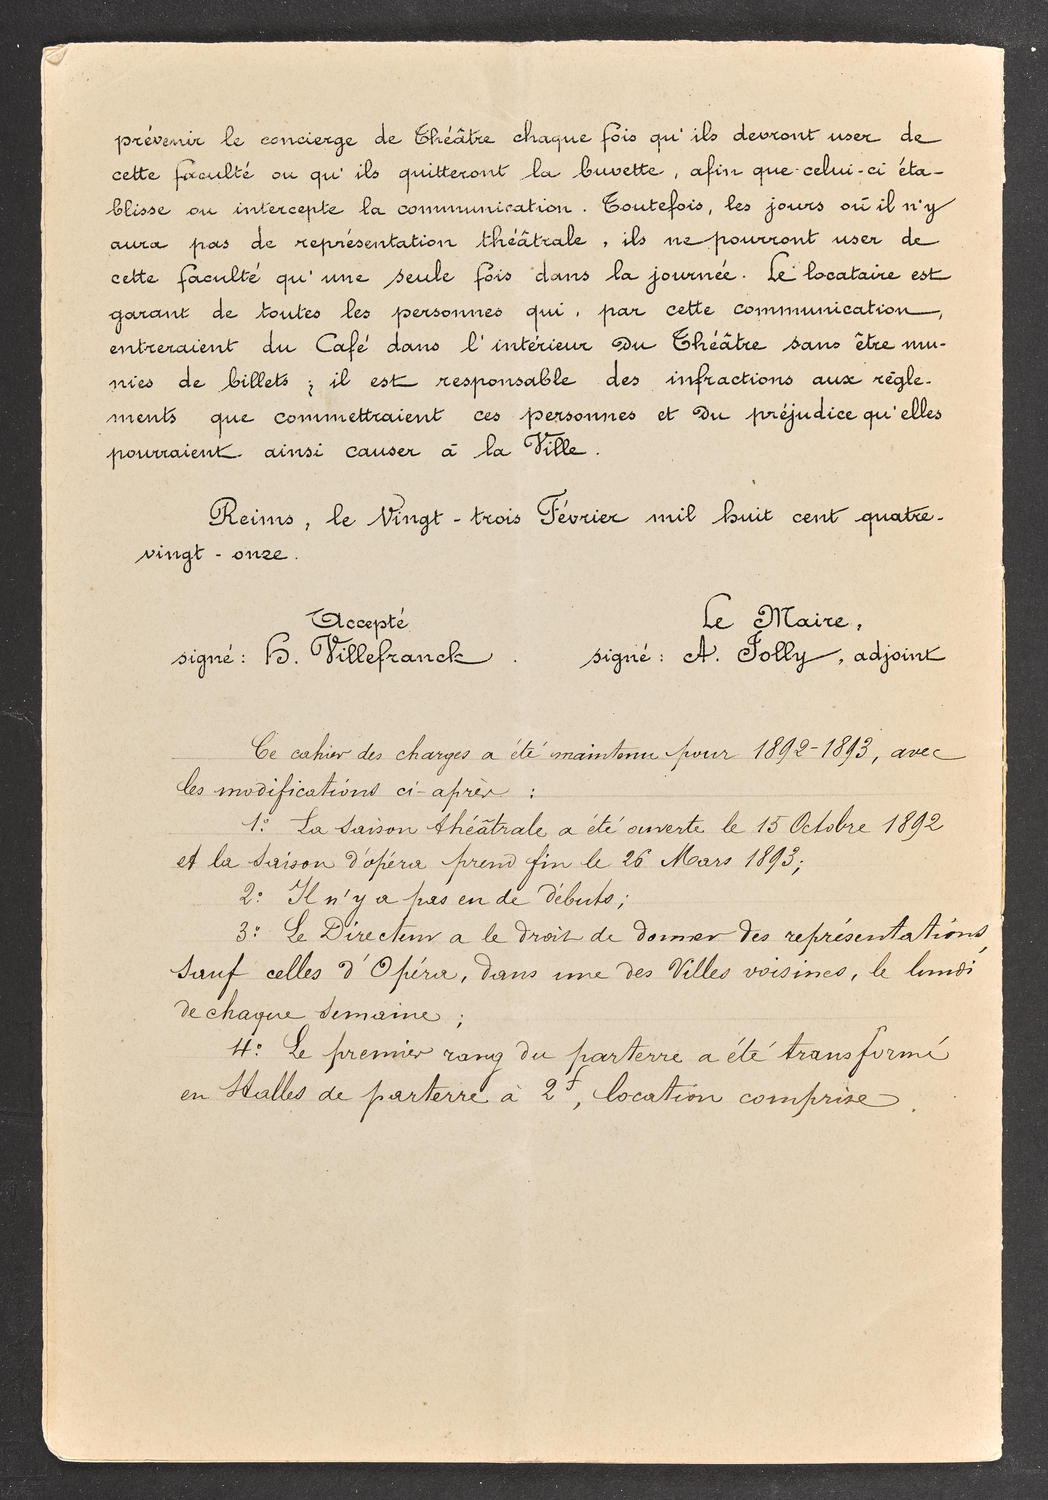 prévenir le concierge de Théâtre chaque fois qu'ils devront user de
cette faculté ou qu'ils quitteront la buvette, afin que celui-ci éta-
blisse ou intercepte la communication. Toutefois, les jours où il n'y
aura pas de représentation théâtrale, ils ne pourront user de
cette faculté qu'une seule fois dans la journée. Le locataire est
garant de toutes les personnes qui, par cette communication,
entreraient du Café dans l'intérieur du Théâtre sans être mu-
nies de billets ; il est responsable des infractions aux règle-
ments que commettraient ces personnes et du préjudice qu'elles
pourraient ainsi causer à la Ville.
Reims, le Vingt-trois Février mil huit cent quatre-
vingt-onze.
Accepté
signé : H. Villefranck.
Le Maire,
signé : A. Jolly, adjoint
Ce cahier des charges a été maintenu pour 1892-1893, avec
les modifications ci-après :
1º La saison théâtrale a été ouverte le 15 Octobre 1892
et la saison d'opéra prend fin le 26 Mars 1893;
2º Il n'y a pas eu de débuts;
3º Le Directeur a le droit de donner des représentations,
sauf celles d'Opéra, dans une des Villes voisines, le lundi
de chaque semaine ;
4º Le premier rang du parterre a été transformé
en Stalles de parterre à 2f, location comprise.